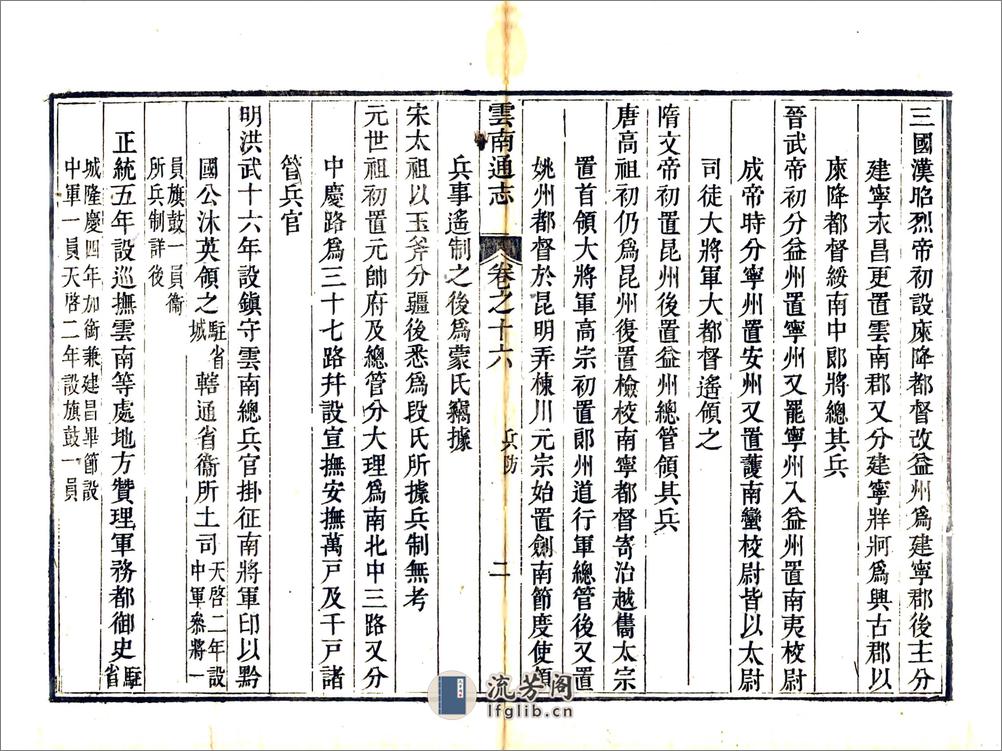 三國漢昭烈帝初設庲降都督改益州爲建寧郡後主分
建寧永昌更置雲南郡又分建寧牂牁爲興古郡以
庲降都督綏南中郎將總其兵
晉武帝初分益州置寧州又罷寧州入益州置南夷校尉
成帝時分寧州置安州又置護南蠻校尉皆以太尉
司徒大將軍大都督遙領之
隋文帝初置昆州後置益州總管領其兵
唐高祖初仍爲昆州復置檢校南寧都督寄治越巂太宗
置首領大將軍高宗初置郎州道行軍總管後又置
姚州都督於昆明弄棟川元宗始置劍南節度使領
雲南通志 卷之十六 兵防 二
兵事遙制之後爲蒙氏竊據
宋太祖以玉斧分疆後悉爲段氏所據兵制無考
元世祖初置元帥府及總管分大理爲南北中三路又分
中慶路爲三十七路幷設宣撫安撫萬戸及千戸諸
管兵官
明洪武十六年設鎮守雲南總兵官掛征南將軍印以黔
國公沐英領之駐省城轄通省衞所土司天啓二年設中軍參將一
員旗鼓一員衞所兵制詳後
正統五年設巡撫雲南等處地方贊理軍務都御史駐省
城隆慶四年加銜兼建昌畢節設中軍一員天啓二年設旗鼓一員
流芳阁
lfglib.cn